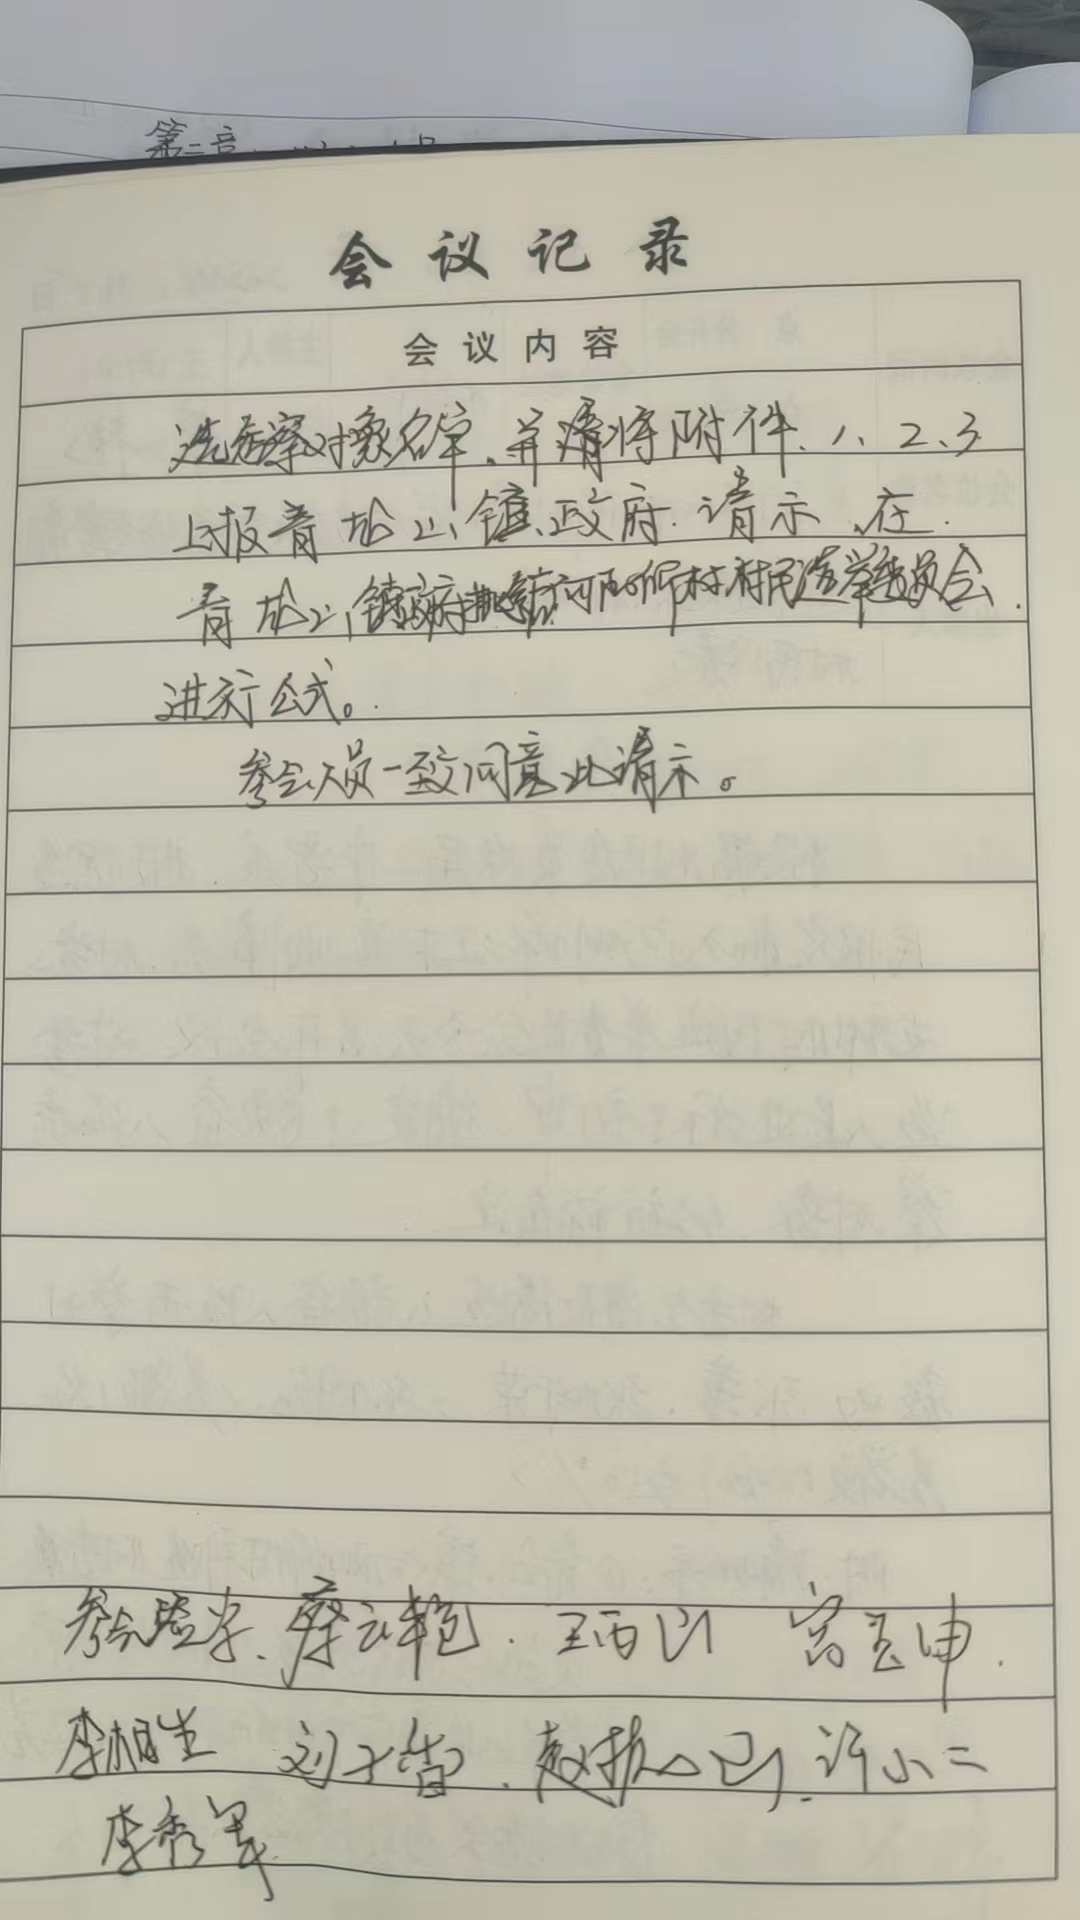 第二章
会议记录
会议内容
选考察对象名单,并请将附件、1、2、3
上报青龙山镇政府请示,在
青龙山镇政府 村村民选举委员会
进行公式。
参会人员一致同意此请示。
参会签字、蔡 王丙山 宫玉申
李相生 刘子 赵振 许小二
李秀军